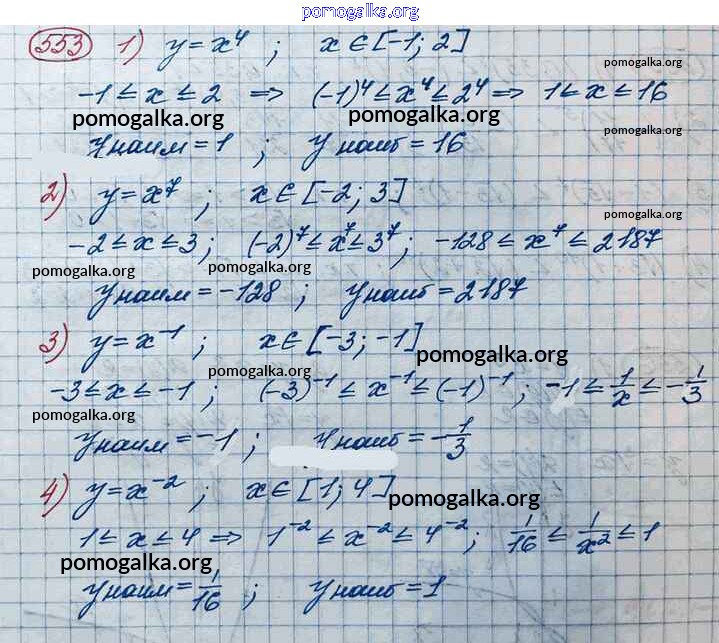 pomogalka.org
553 1) y = x⁴ ; x ∈ [-1; 2]
pomogalka.org
-1 ≤ x ≤ 2 ⇒ (-1)⁴ ≤ x⁴ ≤ 2⁴ ⇒ 1 ≤ x ≤ 16
pomogalka.org pomogalka.org pomogalka.org
Yнаим = 1 ; Yнаиб = 16
2) y = x⁷ ; x ∈ [-2; 3]
pomogalka.org
-2 ≤ x ≤ 3; (-2)⁷ ≤ x⁷ ≤ 3⁷; -128 ≤ x⁷ ≤ 2187
pomogalka.org pomogalka.org pomogalka.org
Yнаим = -128 ; Yнаиб = 2187
3) y = x⁻¹ ; x ∈ [-3; -1]
pomogalka.org pomogalka.org
-3 ≤ x ≤ -1 ; (-3)⁻¹ ≤ x⁻¹ ≤ (-1)⁻¹ ; -1 ≤ 1/x ≤ -1/3
pomogalka.org
Yнаим = -1 ; Yнаиб = -1/3
4) y = x⁻² ; x ∈ [1; 4]
pomogalka.org
1 ≤ x ≤ 4 ⇒ 1⁻² ≤ x⁻² ≤ 4⁻² ; 1/16 ≤ 1/x² ≤ 1
pomogalka.org
Yнаим = 1/16 ; Yнаиб = 1